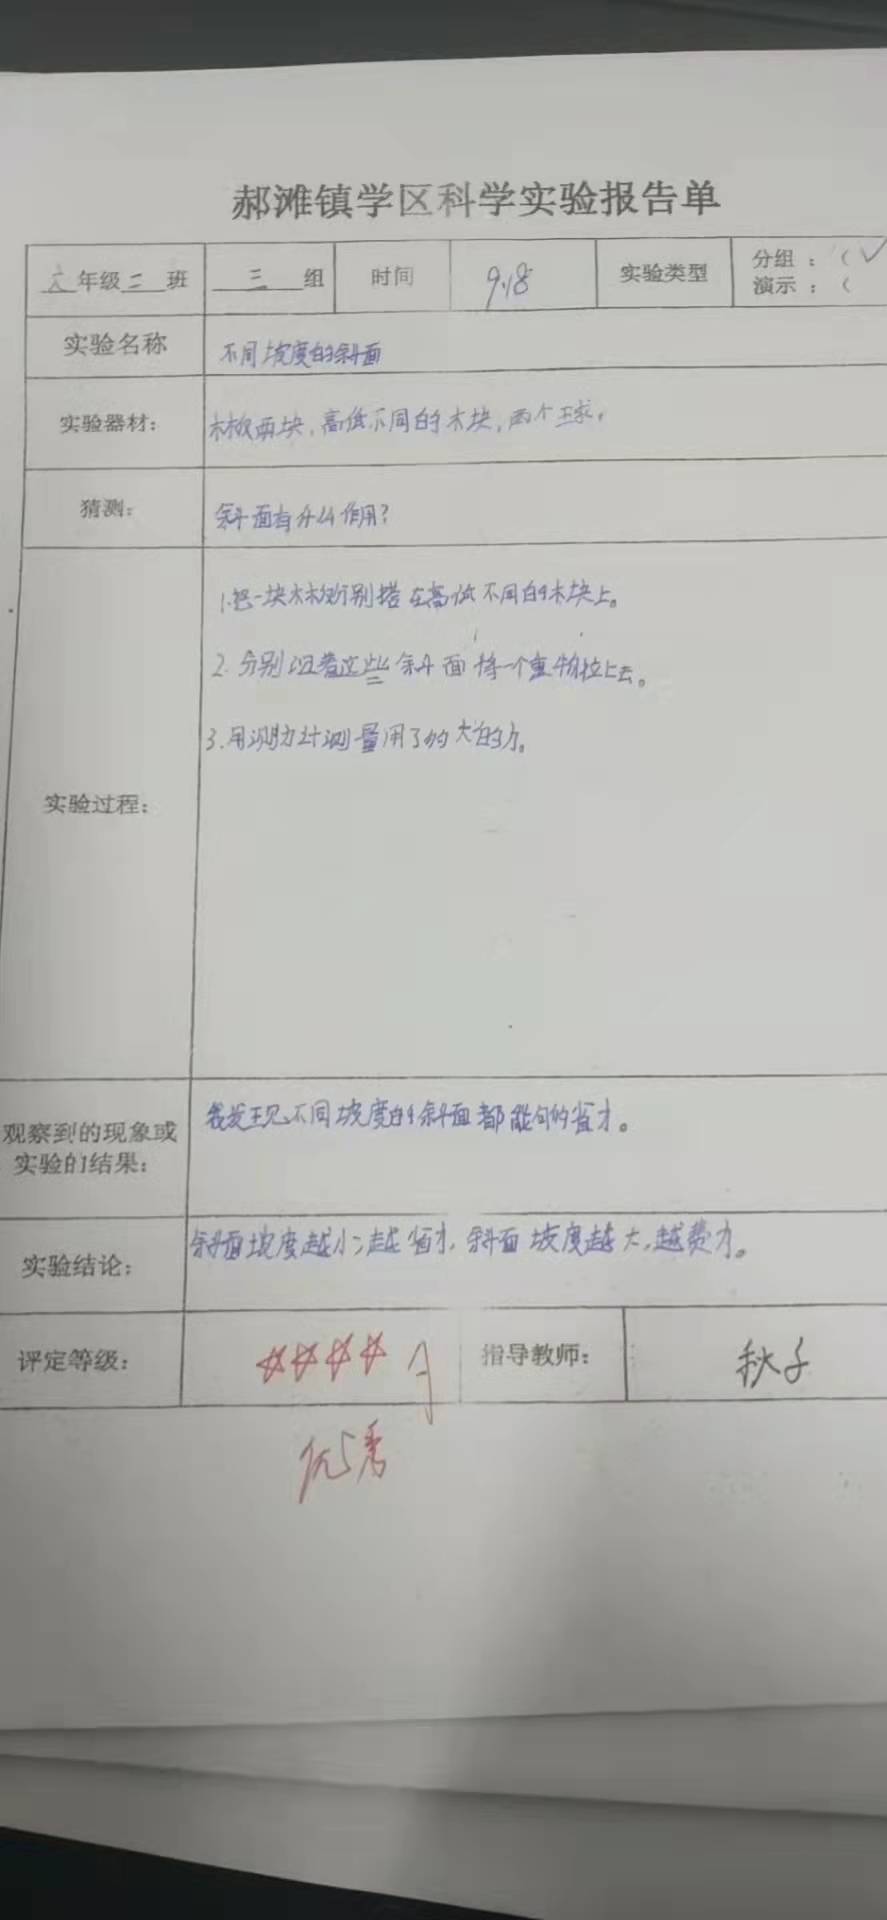 郝滩镇学区科学实验报告单
六年级二班 三组 时间 9.18 实验类型 分组：（✓
演示：（
实验名称 不同坡度的斜面
实验器材： 木板两块，高低不同的木块，两个球。
猜测： 斜面有什么作用？
1.把一块木板分别搭在高低不同的木块上。
2.分别沿着这些斜面将一个重物拉上去。
3.用测力计测量用了多大的力。
实验过程：
观察到的现象或
实验的结果： 我发现不同坡度的斜面都能够省力。
实验结论： 斜面坡度越小，越省力，斜面坡度越大，越费力。
评定等级： 指导教师： 秋子
优秀